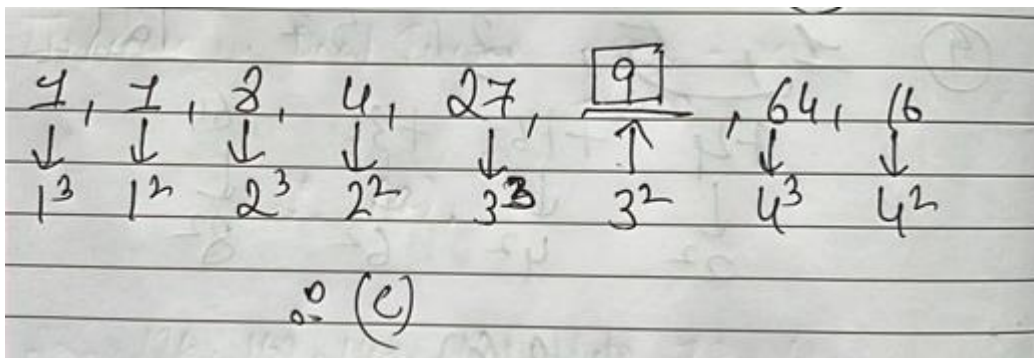 1, 1, 8, 4, 27, 9, 64, 16
↓ ↓ ↓ ↓ ↓ ↑ ↓ ↓
1³ 1² 2³ 2² 3³ 3² 4³ 4²
∴ (c)